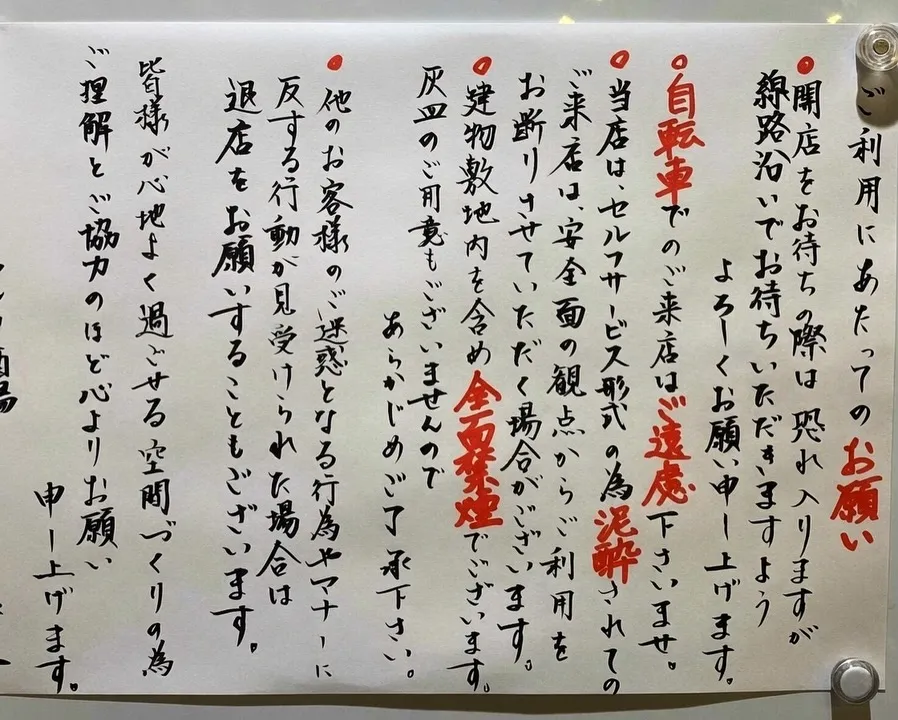 ご利用にあたってのお願い
開店をお待ちの際は恐れ入りますが
線路沿いでお待ちいただきますよう
よろしくお願い申し上げます。
自転車でのご来店はご遠慮下さいませ。
当店は、セルフサービス形式の為泥酔されての
ご来店は、安全面の観点からご利用を
お断りさせていただく場合がございます。
建物敷地内を含め全面禁煙でございます。
灰皿のご用意もございませんので
あらかじめご了承下さい。
他のお客様のご迷惑となる行為やマナーに
反する行動が見受けられた場合は
退店をお願いすることもございます。
皆様が心地よく過ごせる空間づくりの為
ご理解とご協力のほど心よりお願い
申し上げます。
酒場